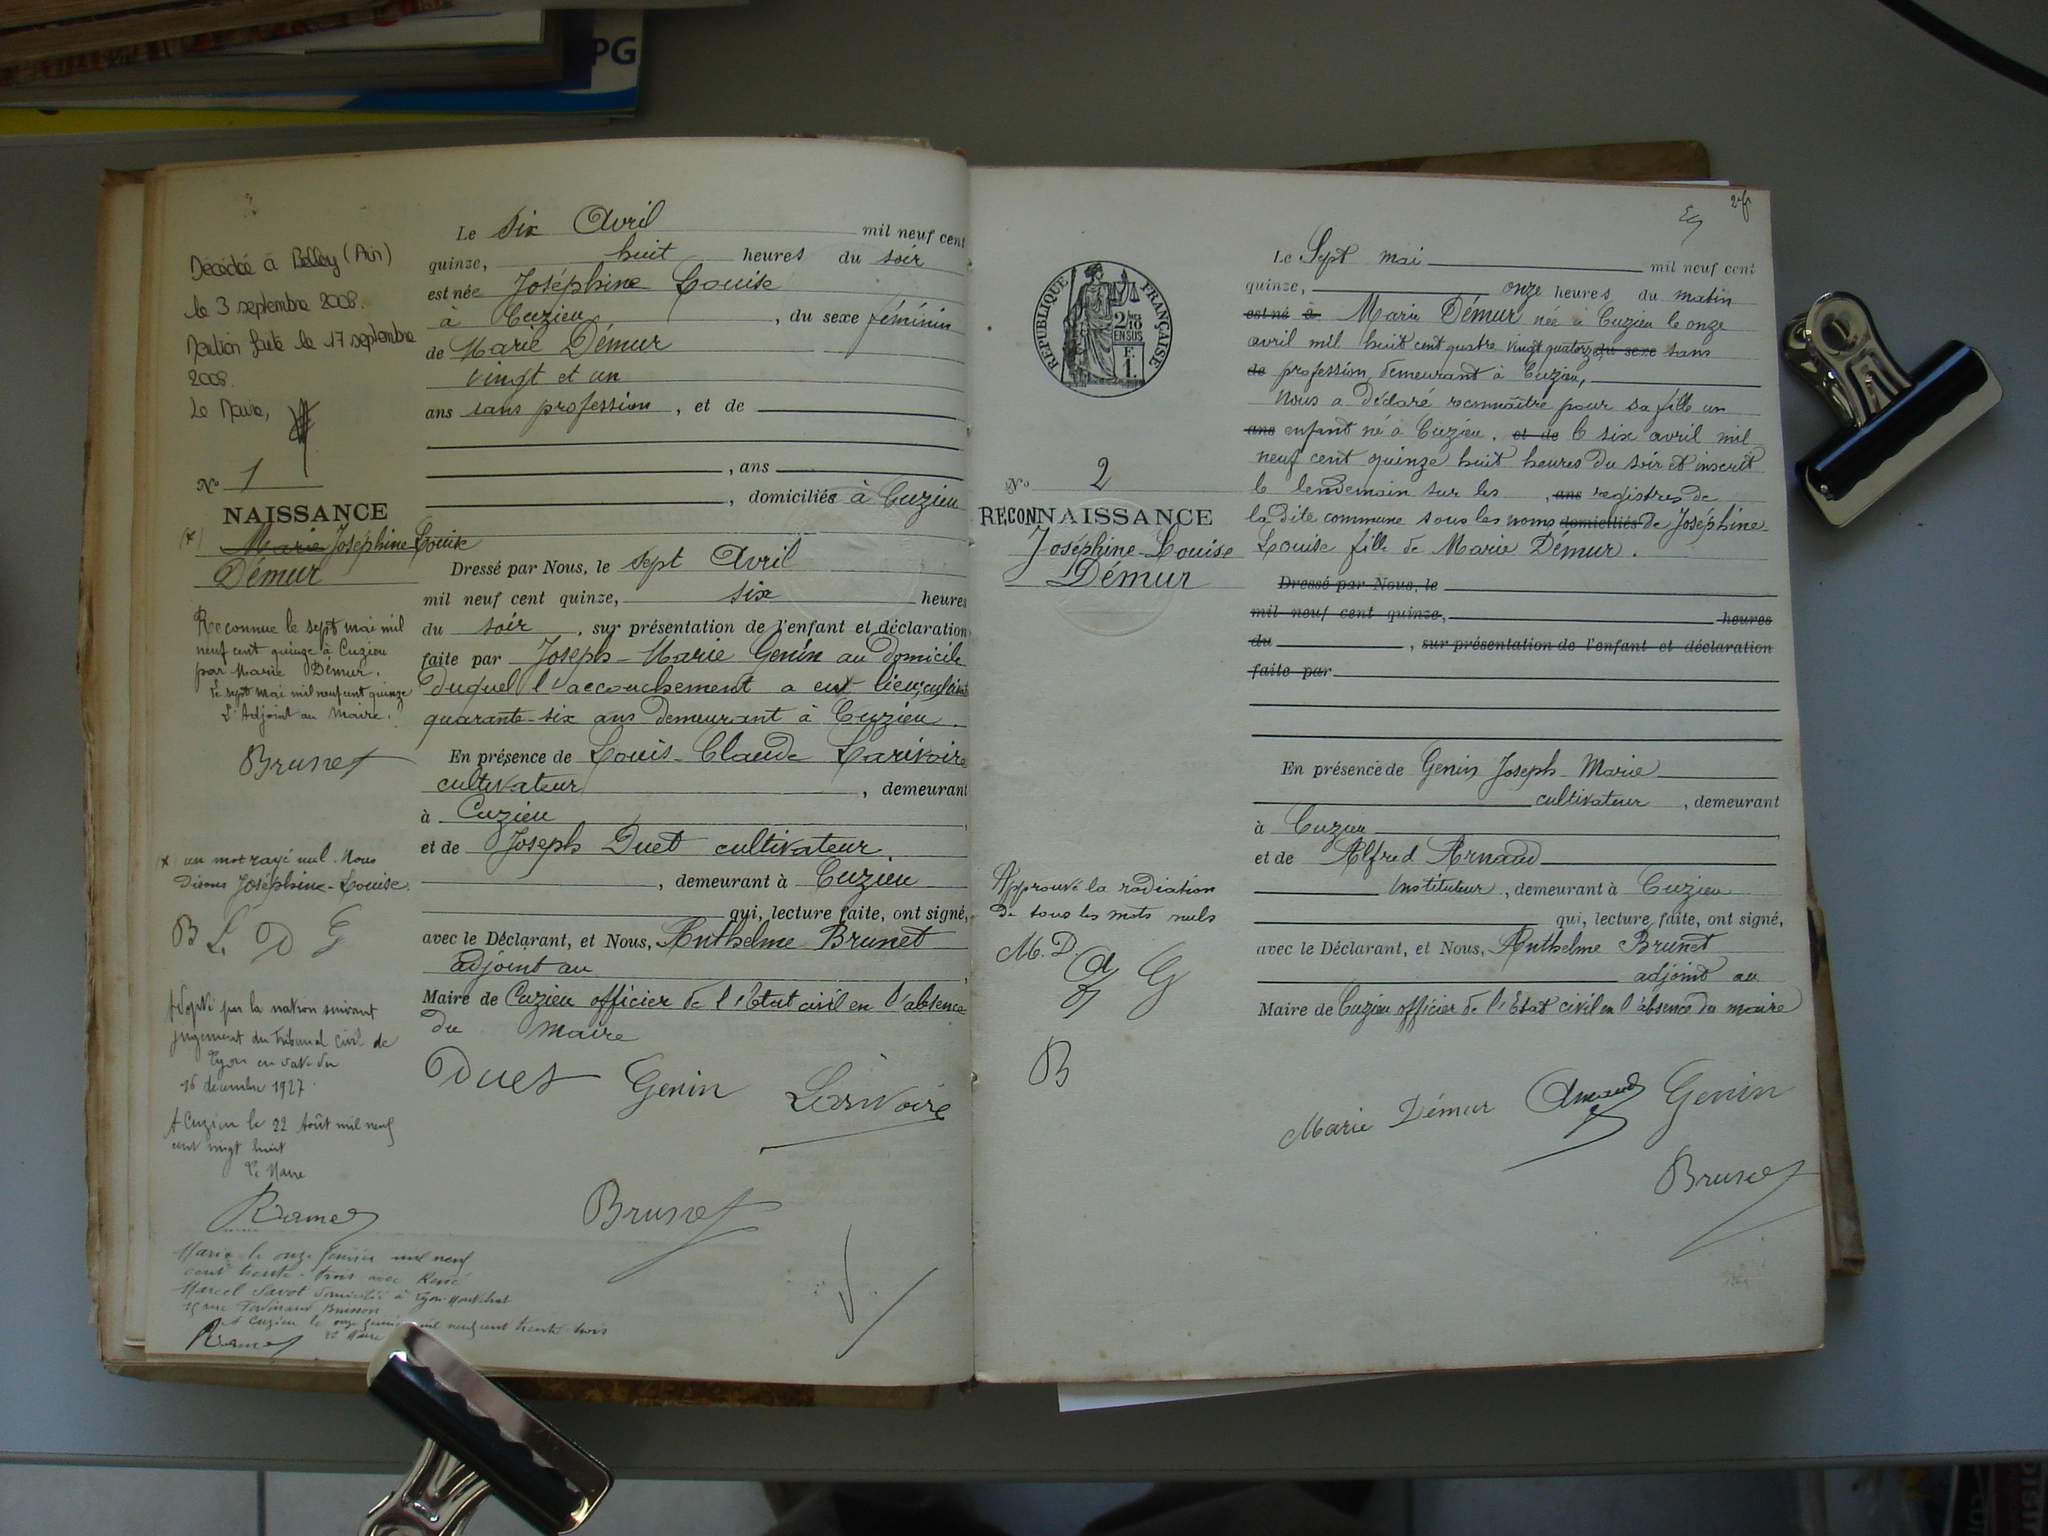 PG
Décédée à Belley (Ain)
le 3 septembre 2008.
Mention faite le 17 septembre
2008.
Le Maire,
N° 1
NAISSANCE
(x) Marie Joséphine Louise
Démur
Reconnue le sept mai mil
neuf cent quinze à Cuzieu
par Marie Démur.
Le sept mai mil neuf cent quinze
L'Adjoint au Maire.
Brunet
(x) un mot rayé nul. Nous
disons Joséphine-Louise.
B L. D G
Adopté par la nation suivant
jugement du Tribunal civil de
Lyon en date du
16 décembre 1927.
A Cuzieu le 22 Août mil neuf
cent vingt huit
Le Maire
Marie le onze mil neuf
cent trente-trois avec René
Marcel Savot domicilié à Lyon-Montchat
rue Ferdinand Buisson
A Cuzieu le onze mil neuf cent trente-trois
Le Maire
Le six Avril mil neuf cent
quinze, huit heures du soir
est née Joséphine Louise
à Cuzieu, du sexe féminin
de Marie Démur
vingt et un
ans sans profession, et de
, ans
, domiciliés à Cuzieu
Dressé par Nous, le sept Avril
mil neuf cent quinze, six heures
du soir, sur présentation de l'enfant et déclaration
faite par Joseph-Marie Genin au domicile
duquel l'accouchement a eu lieu,
quarante-six ans demeurant à Cuzieu.
En présence de Louis-Claude Larivoire
cultivateur, demeurant
à Cuzieu
et de Joseph Duet cultivateur.
, demeurant à Cuzieu
qui, lecture faite, ont signé,
avec le Déclarant, et Nous, Anthelme Brunet
adjoint au
Maire de Cuzieu officier de l'Etat civil en l'absence
du maire
Duet Genin Larivoire
Brunet
RÉPUBLIQUE FRANÇAISE
2/10
EN SUS
F.
1.
N° 2
RECONNAISSANCE
Joséphine-Louise
Démur
Approuvé la radiation
de tous les mots nuls
M. D.
G
B
Le Sept mai mil neuf cent
quinze, onze heures du matin
est né à Marie Démur née à Cuzieu le onze
avril mil huit cent quatre vingt quatorze du sexe sans
de profession, demeurant à Cuzieu,
Nous a déclaré reconnaître pour sa fille un
ans enfant né à Cuzieu. et de le six avril mil
neuf cent quinze huit heures du soir et inscrit
le lendemain sur les , ans registres de
la dite commune sous les noms domiciliés de Joséphine
Louise fille de Marie Démur.
Dressé par Nous, le
mil neuf cent quinze, heures
du , sur présentation de l'enfant et déclaration
faite par
En présence de Genin Joseph-Marie
cultivateur, demeurant
à Cuzieu
et de Alfred Arnaud
Instituteur, demeurant à Cuzieu
qui, lecture faite, ont signé,
avec le Déclarant, et Nous, Anthelme Brunet
adjoint au
Maire de Cuzieu officier de l'Etat civil en l'absence du maire
Marie Démur Arnaud Genin
Brunet